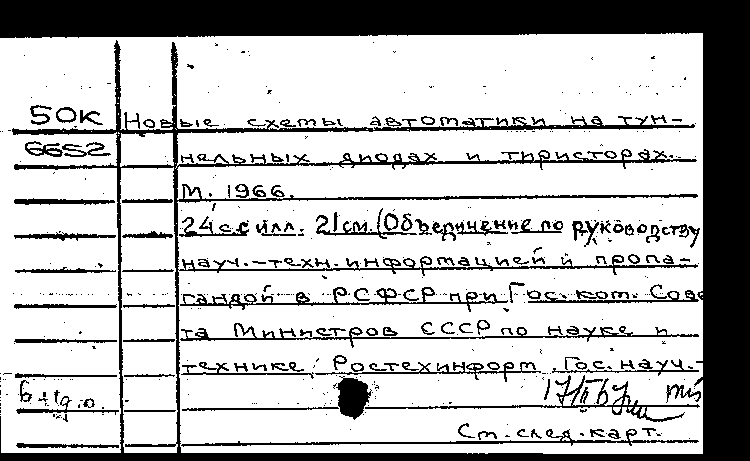 50К Новые схемы автоматики на тун-
6652 нельных диодах и тиристорах.
М. 1966.
24 сс илл. 21 см. (Объединение по руководству
науч.-техн. информацией и пропа-
гандой в РСФСР при Гос. ком. Сове
та Министров СССР по науке и
технике, Ростехинформ. Гос. науч.-
См. след. карт.